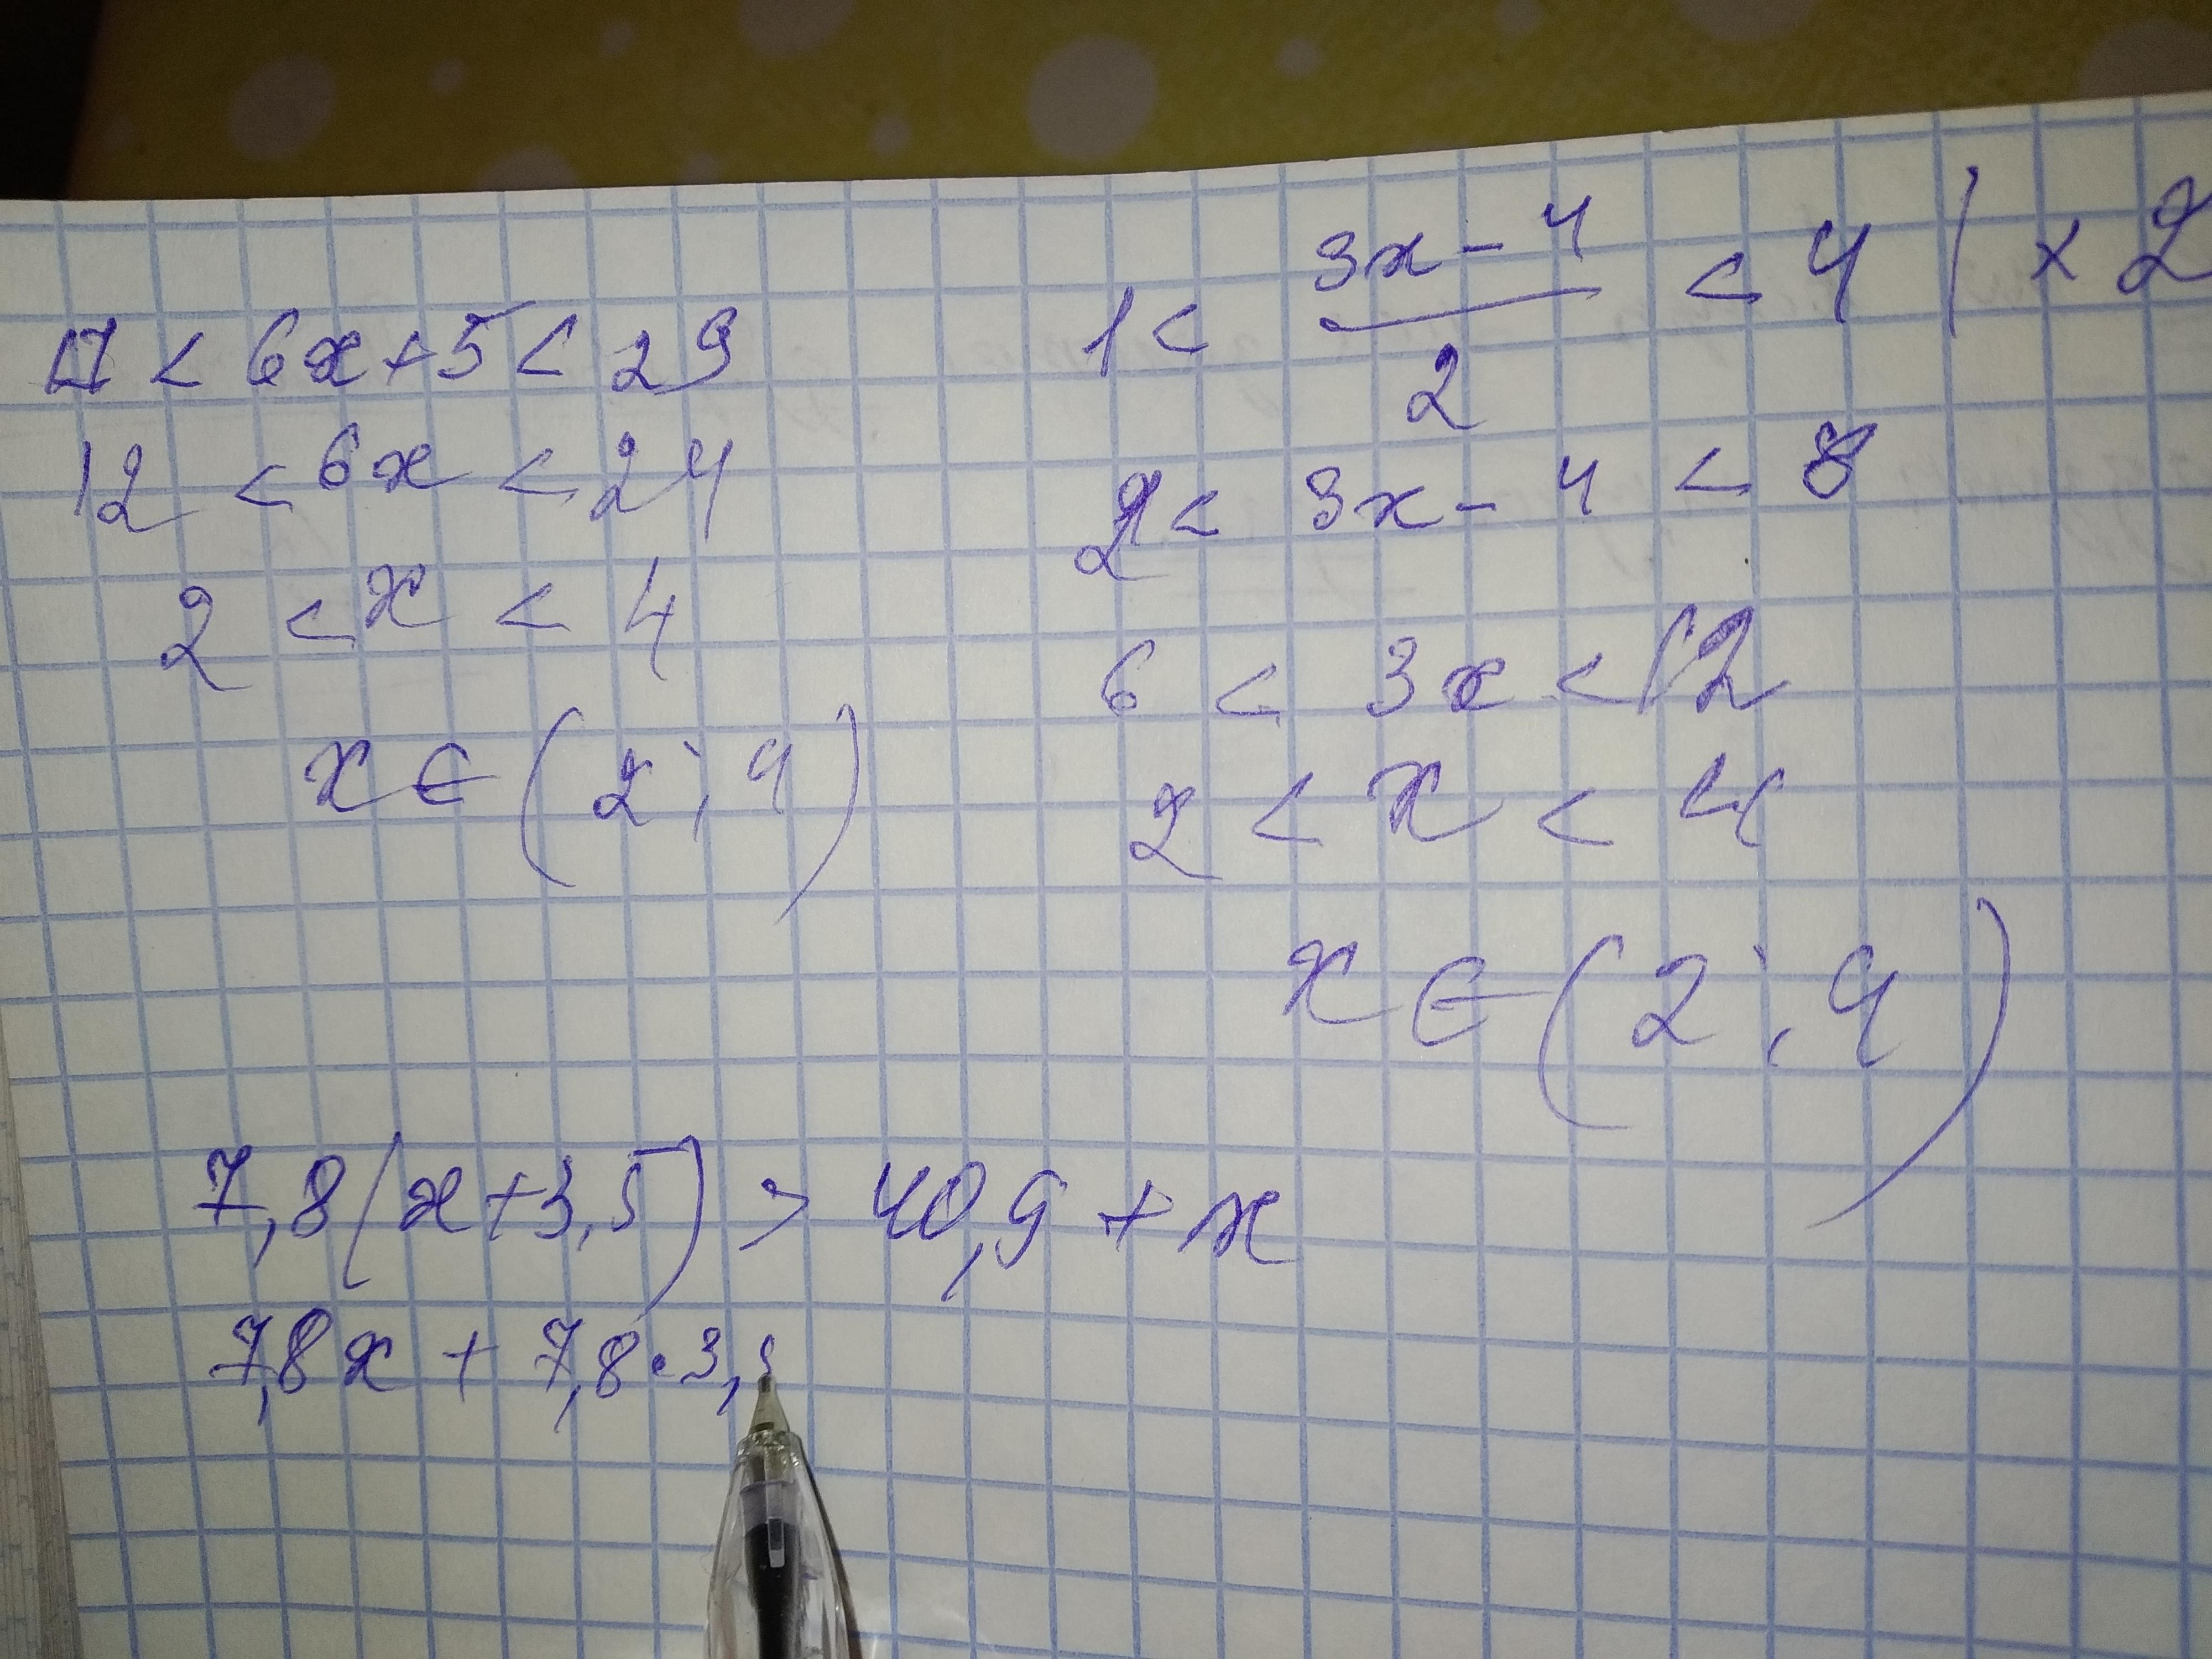 17 < 6x+5 < 29
12 < 6x < 24
2 < x < 4
x ∈ (2; 4)
1 < (3x-4)/2 < 4 | × 2
2 < 3x-4 < 8
6 < 3x < 12
2 < x < 4
x ∈ (2; 4)
7,8(x+3,5) > 40,9 + x
7,8x + 7,8·3,5